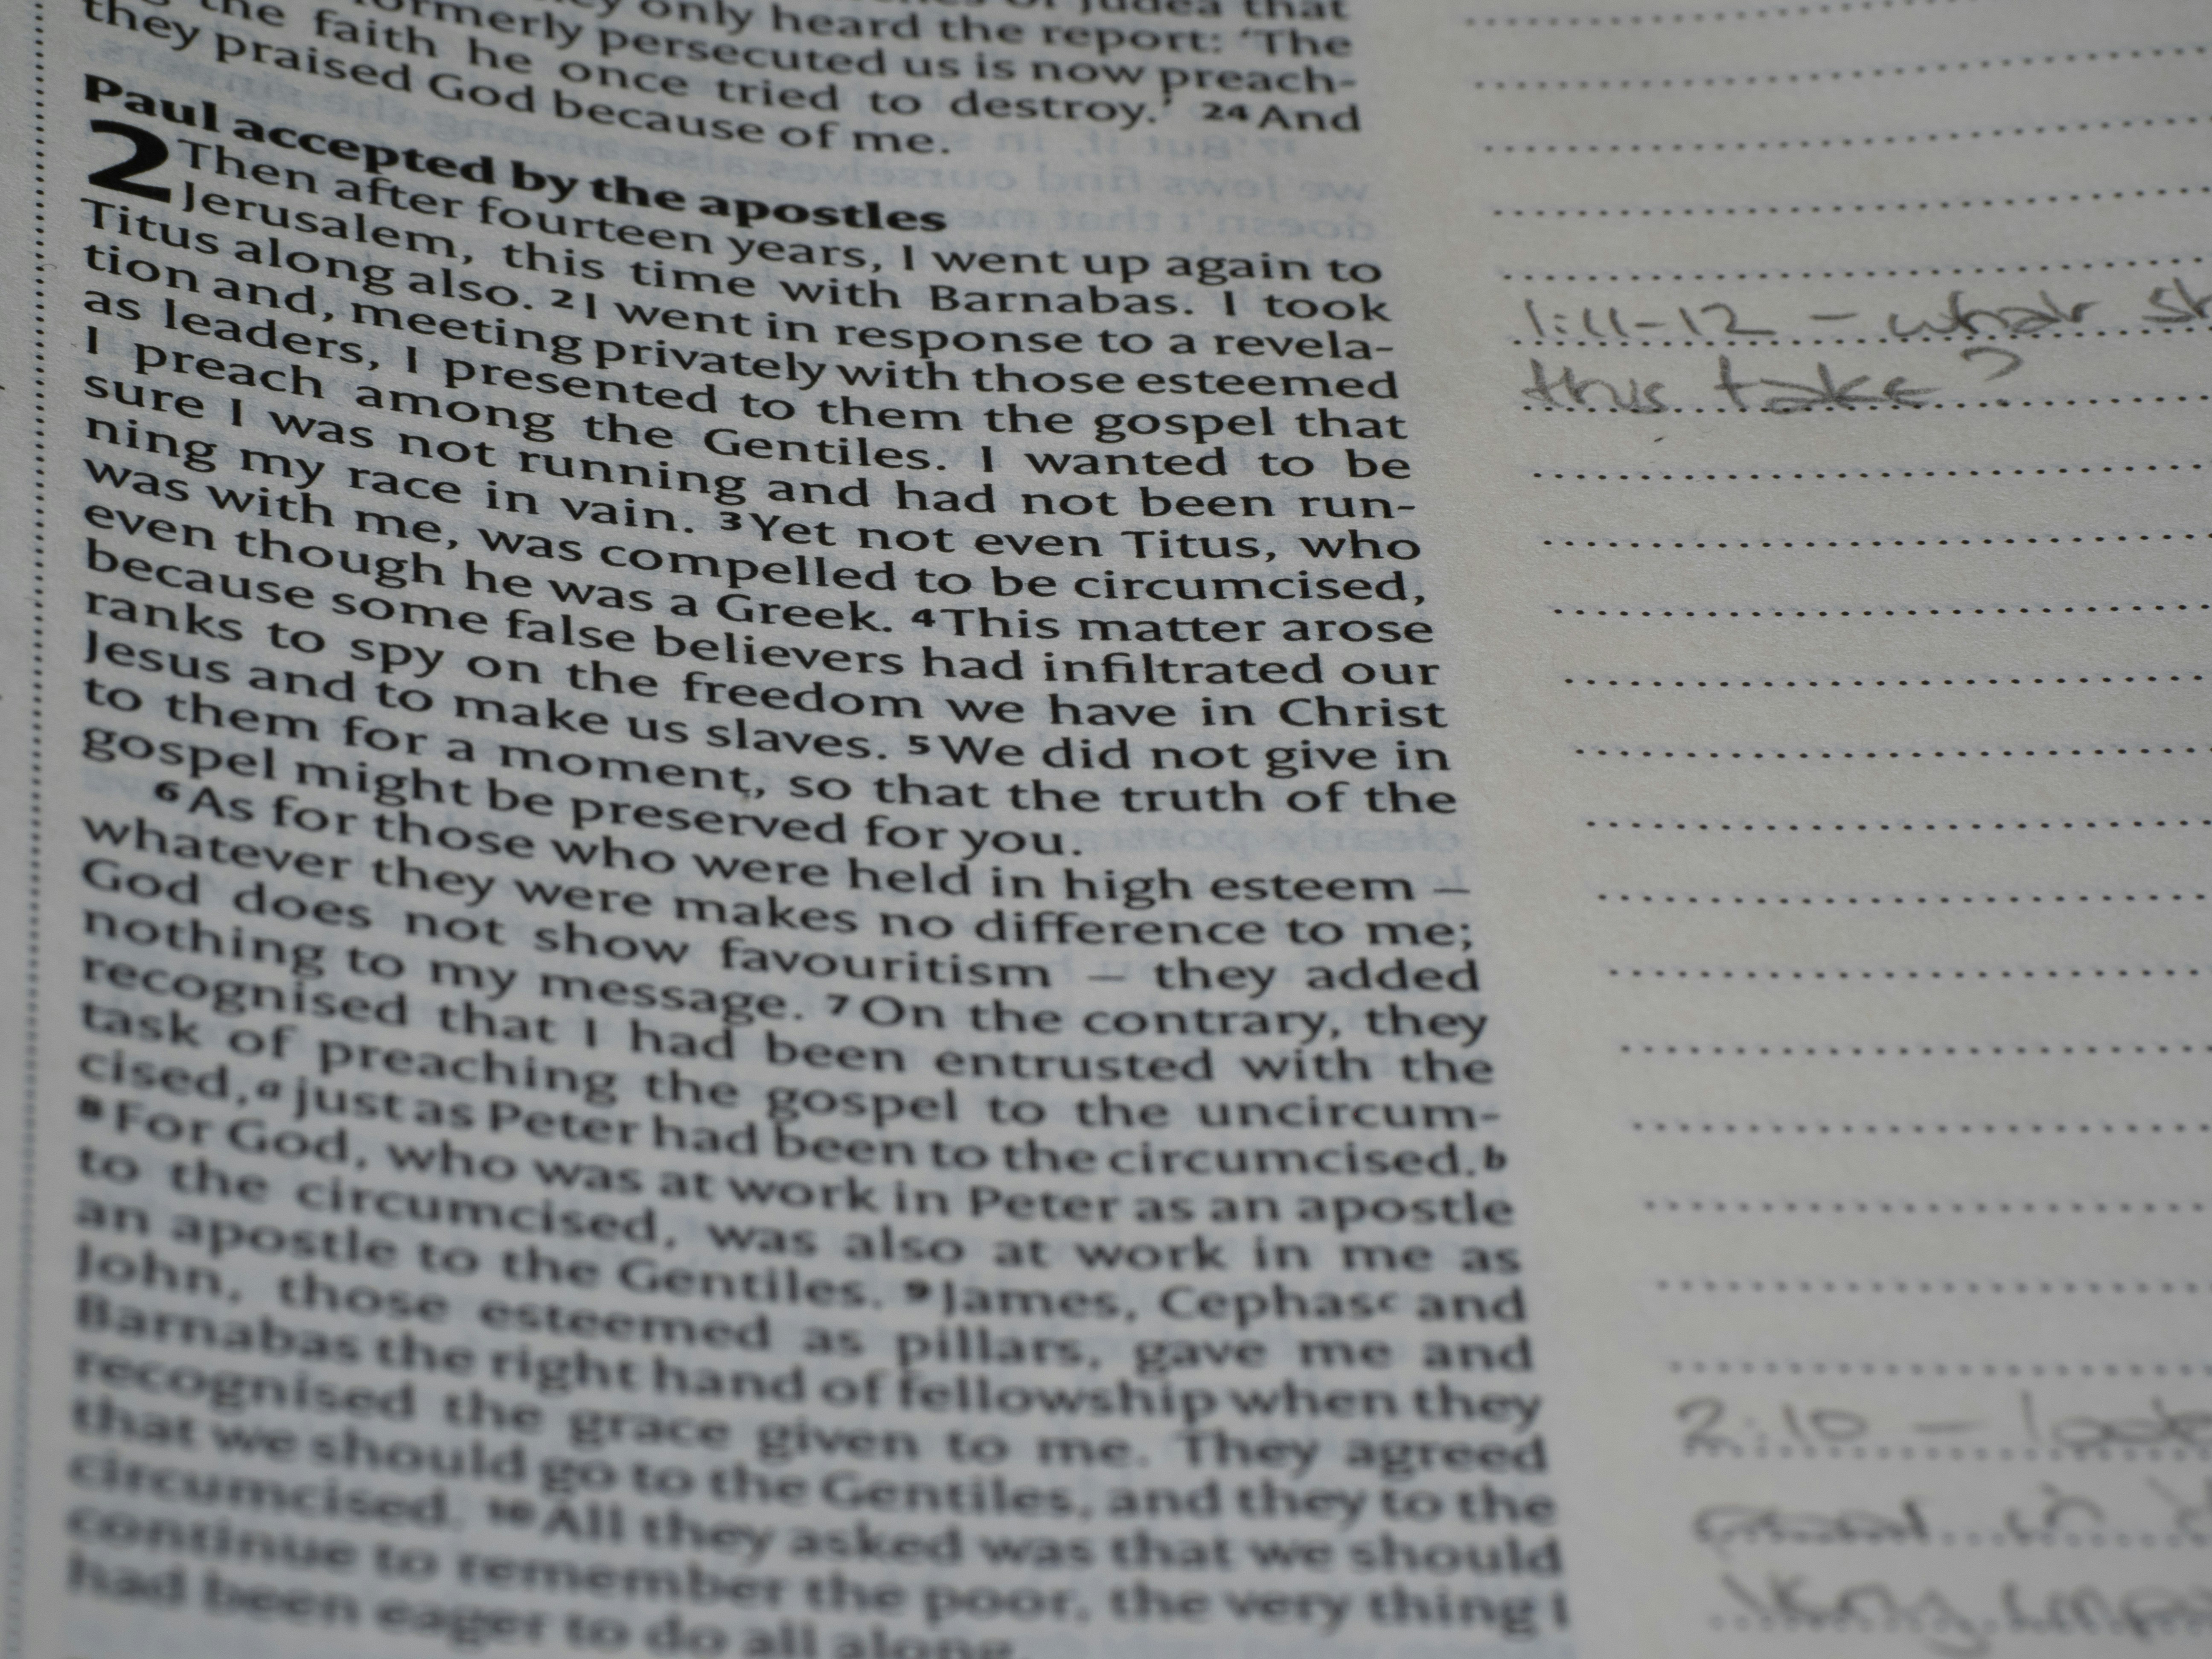 only heard the report: 'The
formerly persecuted us is now preach-
the faith he once tried to destroy.' 24 And
they praised God because of me.
Paul accepted by the apostles
2 Then after fourteen years, I went up again to
Jerusalem, this time with Barnabas. I took
Titus along also. 2 I went in response to a revela-
tion and, meeting privately with those esteemed
as leaders, I presented to them the gospel that
I preach among the Gentiles. I wanted to be
sure I was not running and had not been run-
ning my race in vain. 3 Yet not even Titus, who
was with me, was compelled to be circumcised,
even though he was a Greek. 4 This matter arose
because some false believers had infiltrated our
ranks to spy on the freedom we have in Christ
Jesus and to make us slaves. 5 We did not give in
to them for a moment, so that the truth of the
gospel might be preserved for you.
6 As for those who were held in high esteem –
whatever they were makes no difference to me;
God does not show favouritism – they added
nothing to my message. 7 On the contrary, they
recognised that I had been entrusted with the
task of preaching the gospel to the uncircum-
cised,a just as Peter had been to the circumcised.b
8 For God, who was at work in Peter as an apostle
to the circumcised, was also at work in me as
an apostle to the Gentiles. 9 James, Cephasc and
John, those esteemed as pillars, gave me and
Barnabas the right hand of fellowship when they
recognised the grace given to me. They agreed
that we should go to the Gentiles, and they to the
circumcised. 10 All they asked was that we should
continue to remember the poor, the very thing I
had been eager to do all along.
1:11-12 –
this take?
2:10 –